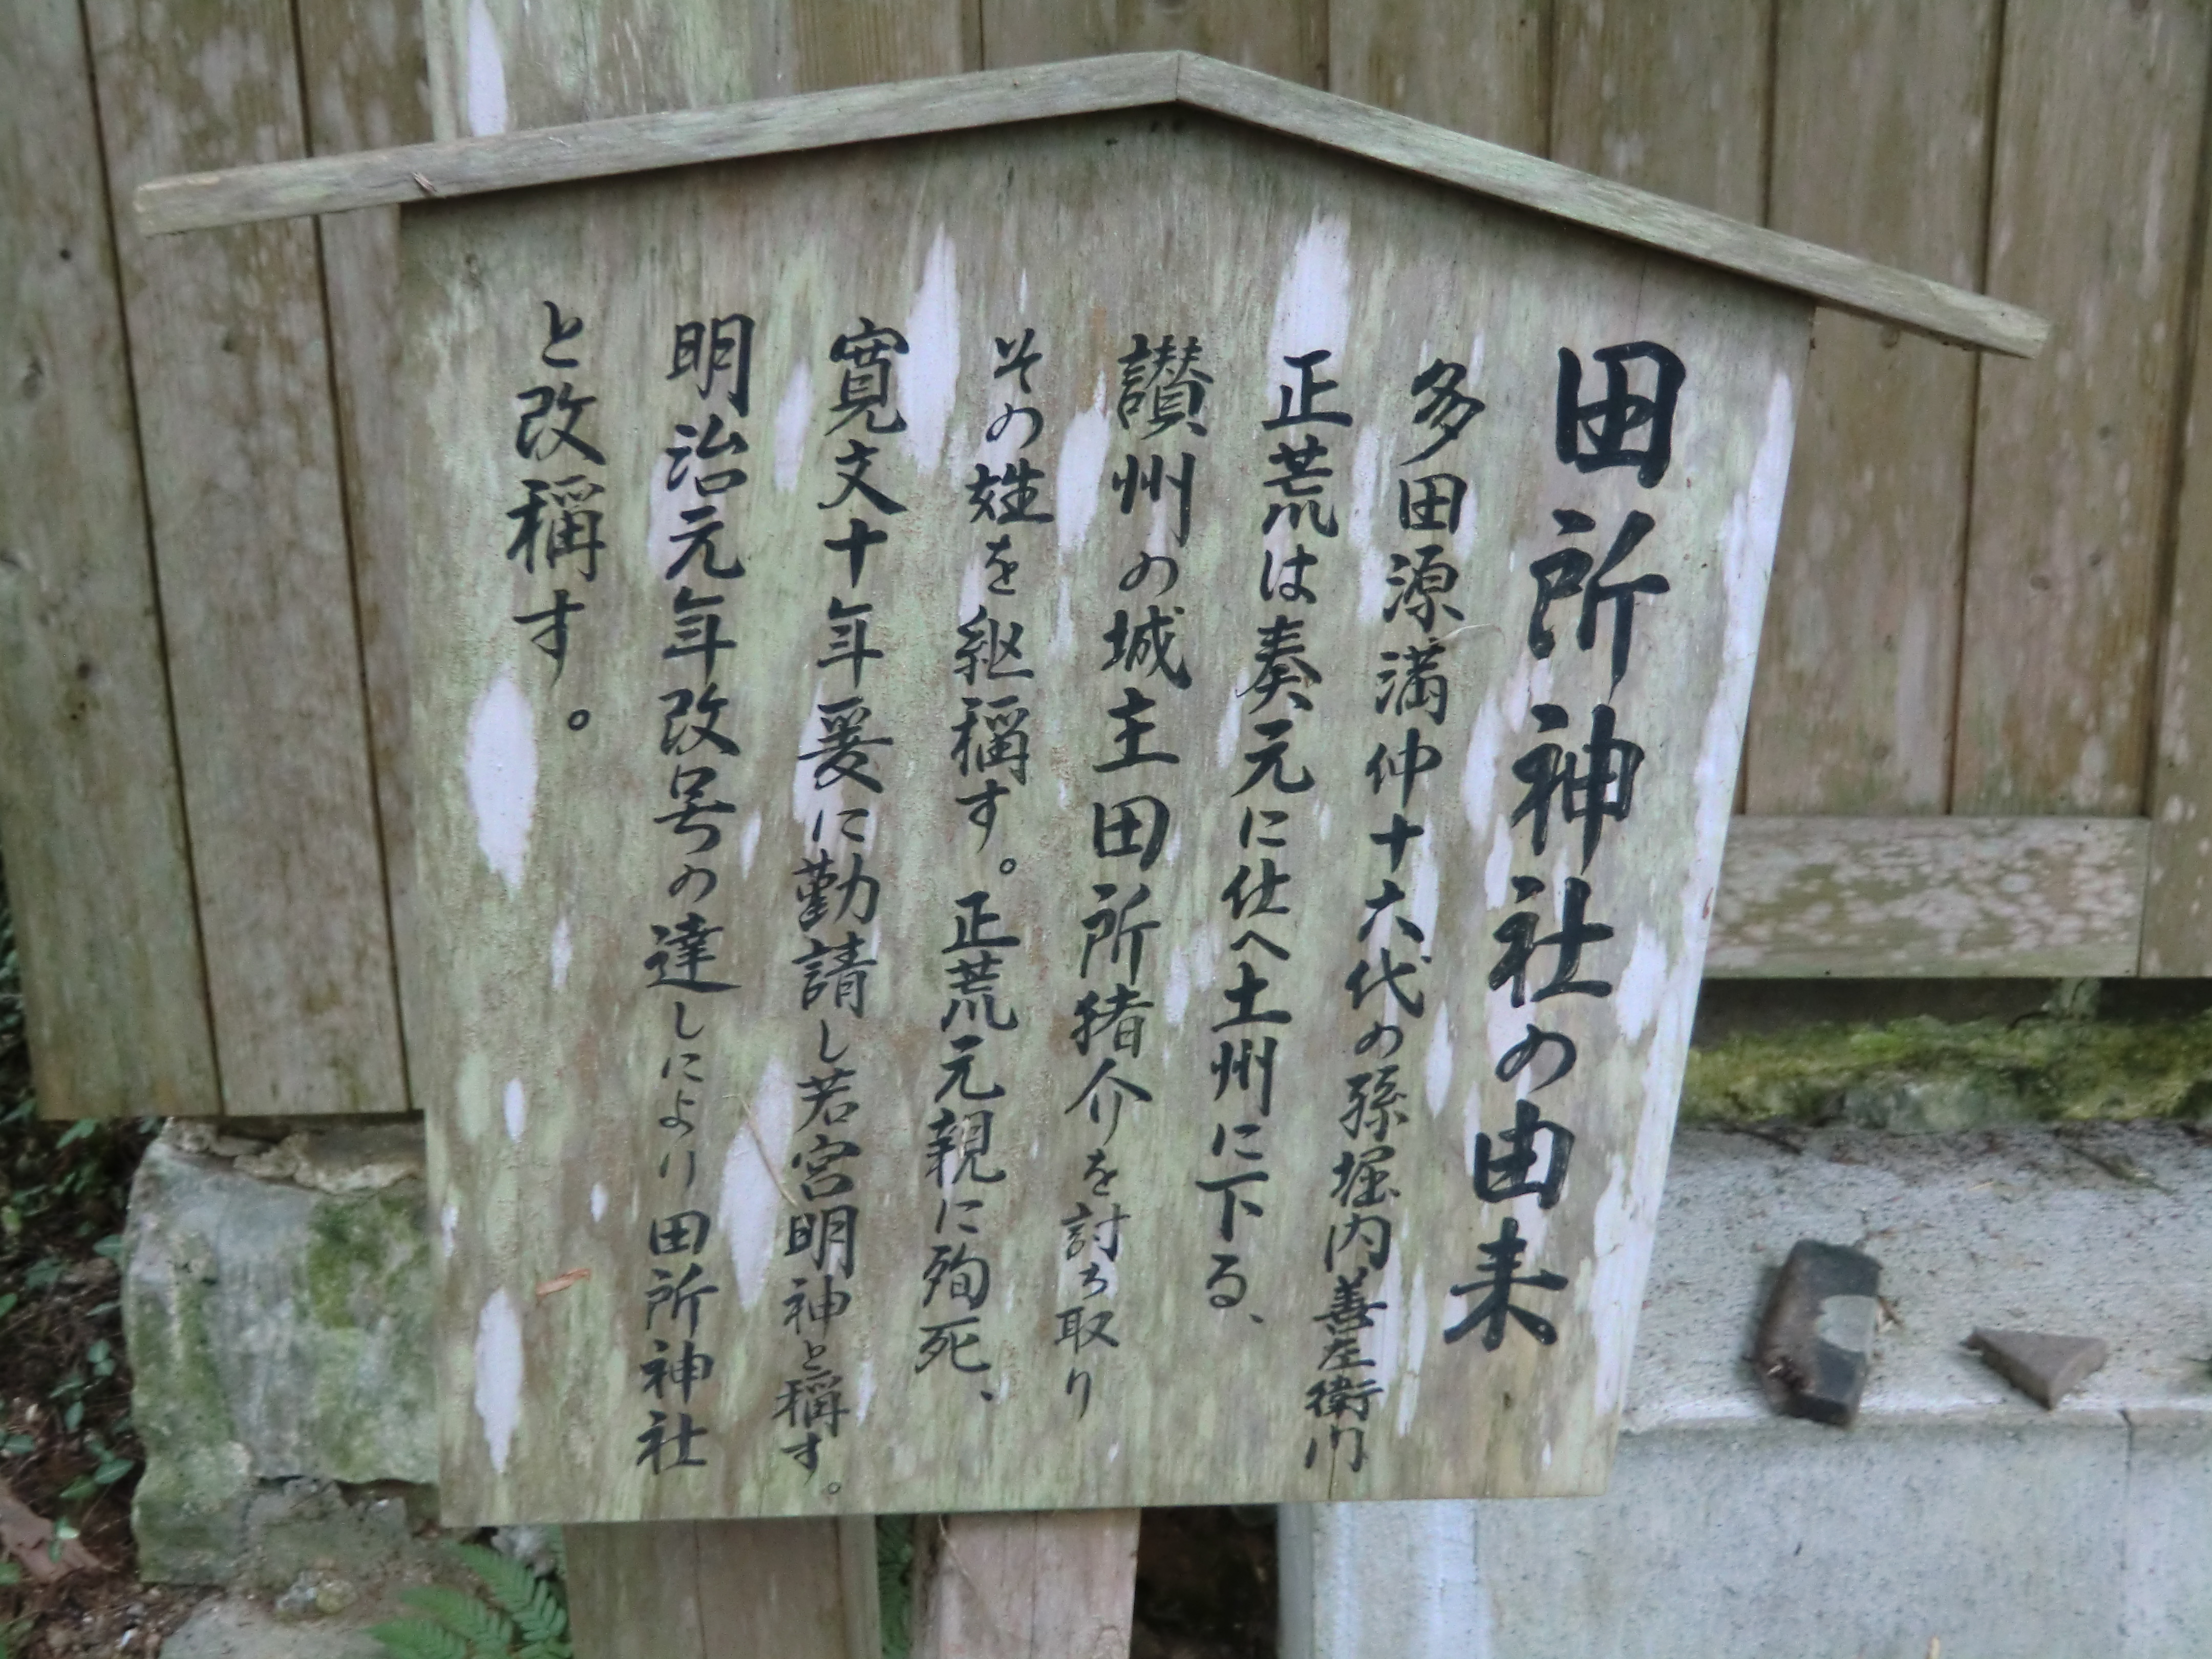 田所神社の由来
多田源満仲十六代の孫堀内善左衛門
正荒は奏元に仕へ土州に下る、
讃州の城主田所猪介を討ち取り
その姓を継稱す。正荒元親に殉死、
寛文十年爰に勤請し若宮明神と稱す。
明治元年改号の達しにより田所神社
と改稱す。